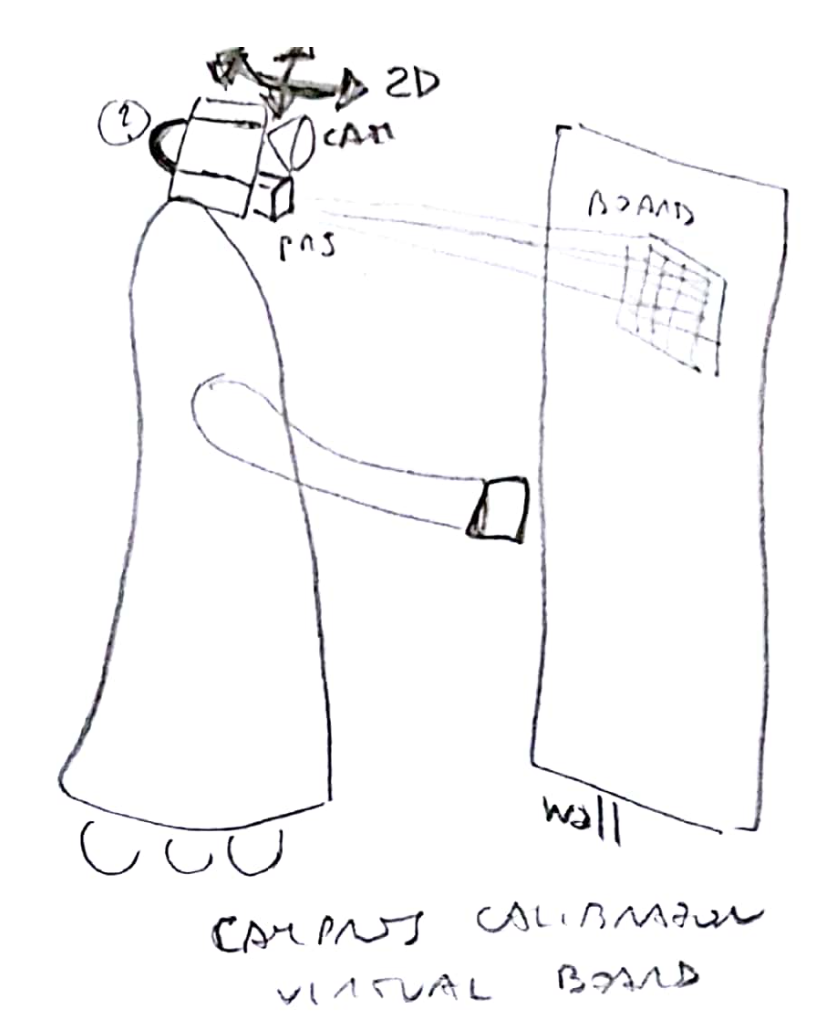 2D
?
CAM
PRJ
BOARD
wall
CAMPRJ CALIBRATION
VIRTUAL BOARD